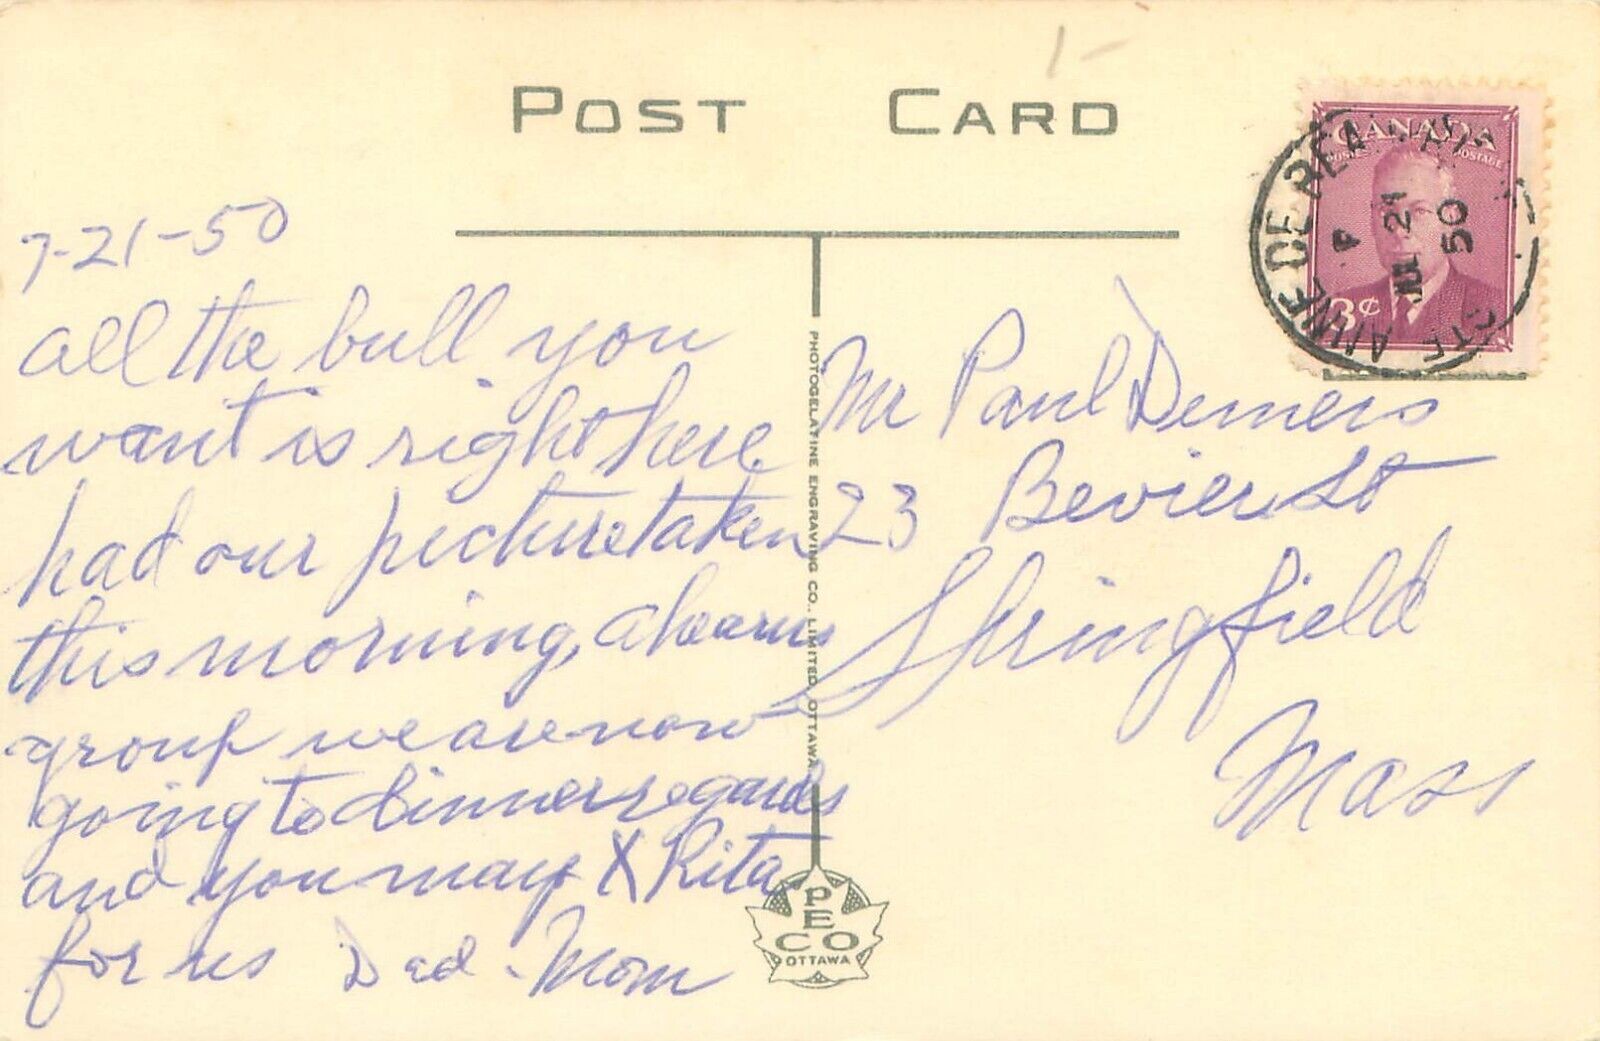 1-
POST CARD
CANADA
POSTES POSTAGE
3¢
STE ANNE DE BEA
P
JUL 21
50
7-21-50
all the bull you
want is right here
had our picture taken
this morning, ahearns
group we are now
going to dinner regards
and you may X Rita
for us Dad - Mom
Mr Paul Demers
23 Bevier St
Springfield
Mass
PHOTOGELATINE ENGRAVING CO., LIMITED, OTTAWA
PECO
OTTAWA